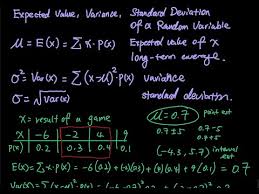 Expected Value, Variance, Standard Deviation
of a Random Variable
μ = E(x) = Σ x·p(x) Expected value of x
long-term average.
σ² = Var(x) = Σ (x-μ)²·p(x) variance
σ = √Var(x) standard deviation.
x = result of a game
μ = 0.7 point est
0.7 ± 5 0.7-5
0.7+5
(-4.3, 5.7) interval est
x | -6 | -2 | 4 | 9
p(x) | 0.2 | 0.3 | 0.4 | 0.1
E(x) = Σ x·p(x) = -6(0.2) + (-2)(0.3) + (4)(0.4) + 9(0.1) = 0.7